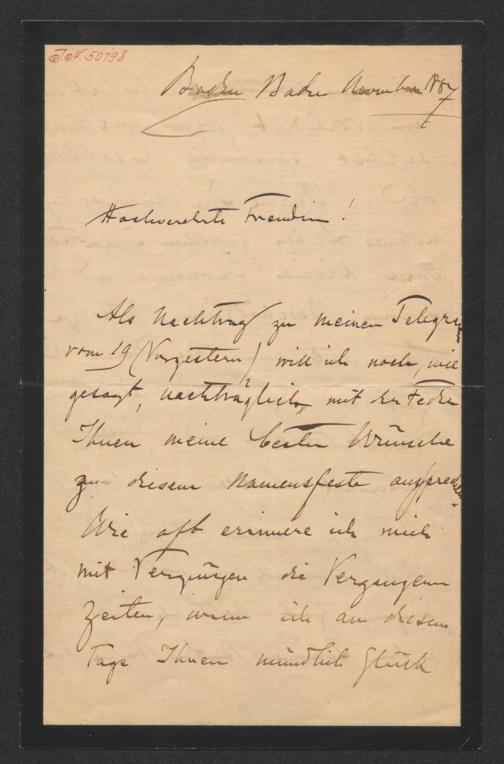 J.N. 50798
Baden Baden November 887
Hochverehrte Freundin!
Als Nachtrag zu meinen Telegram
vom 19 (Vorgestern) will ich noch, wie
gesagt, nachträglich, mit der Feder
Ihnen meine besten Wünsche
zu diesem Namensfeste aussprechen.
Wie oft erinnere ich mich
mit Vergnügen die Vergangenen
Zeiten, wenn ich an diesem
Tage Ihnen mündlich Glück